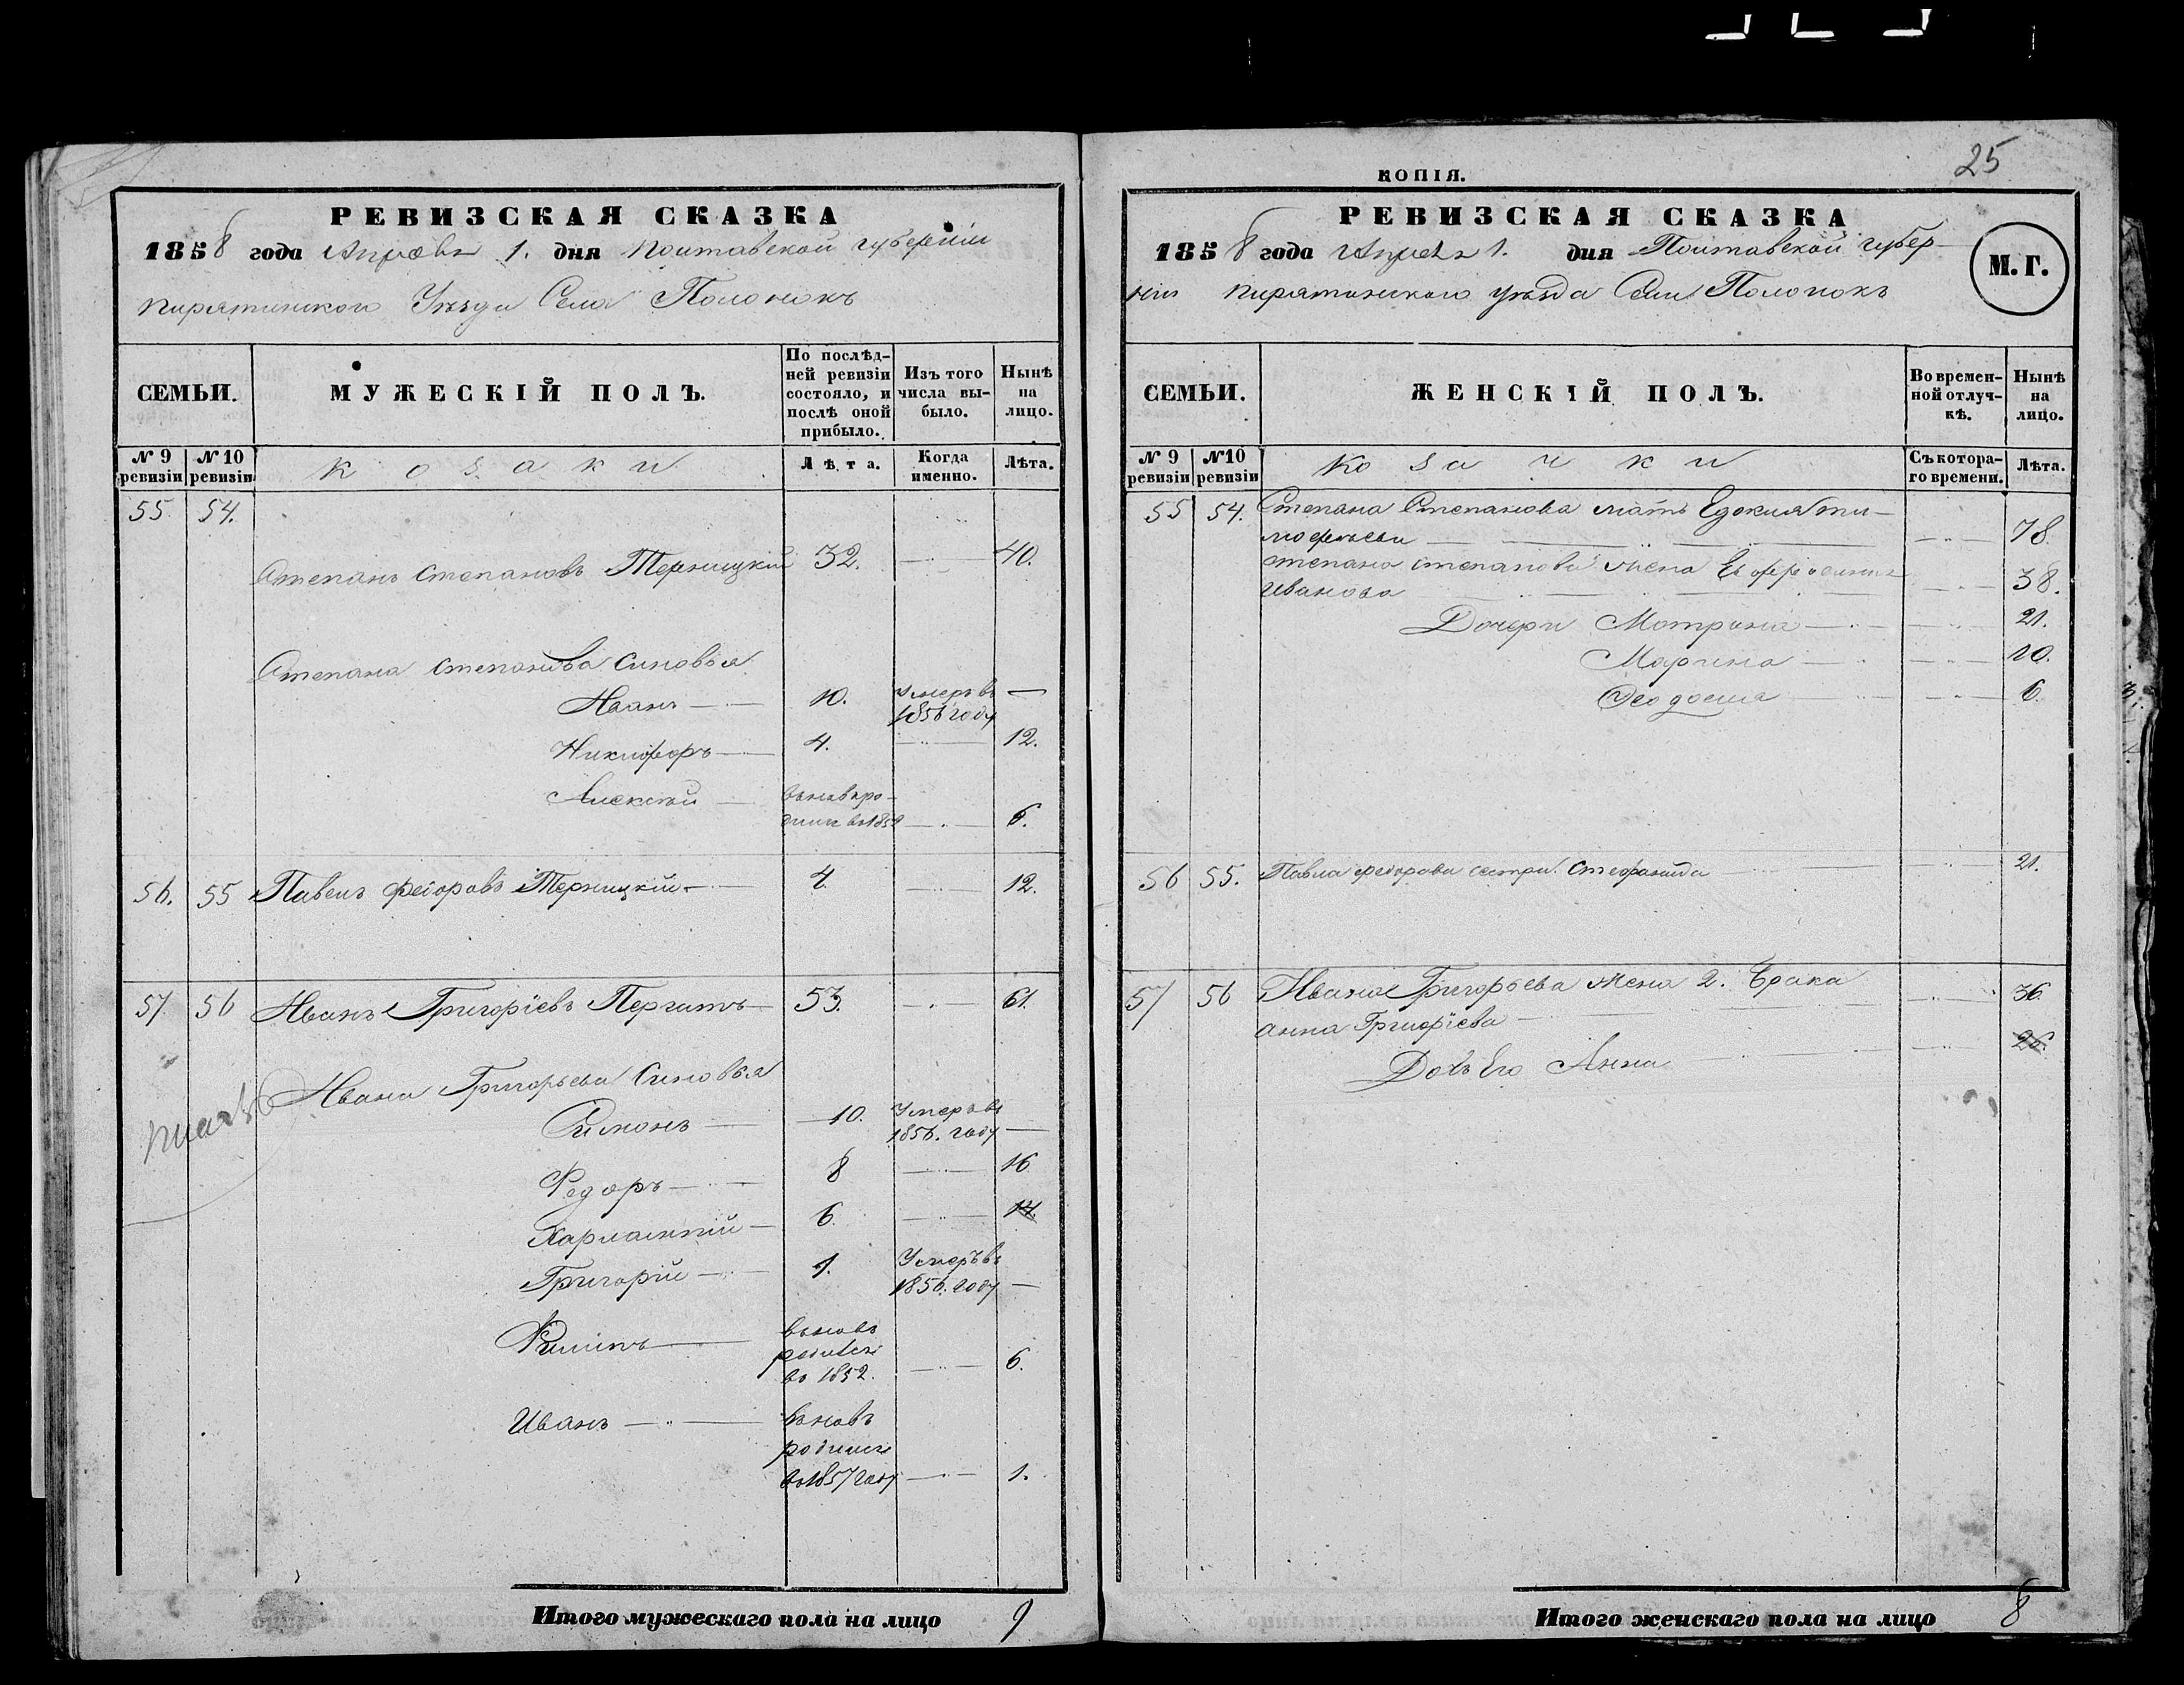 РЕВИЗСКАЯ СКАЗКА
1858 года Апреля 1. дня Полтавской губерніи
Пирятинского Уезда Села Полонокъ
СЕМЬИ.
МУЖЕСКІЙ ПОЛЪ.
По послѣд-
ней ревизіи
состояло, и
послѣ оной
прибыло.
Изъ того
числа вы-
было.
Нынѣ
на
лицо.
№ 9
ревизіи
№ 10
ревизіи
Козаки
Лѣта.
Когда
именно.
Лѣта.
55. 54.
Степанъ Степановъ Терницкій 32. 40.
Степана Степанова Синовья
Иванъ 10. Умеръ въ
1856 году
Никифоръ 4. 12.
Алексѣй вновь ро-
дился в 1852 6.
56. 55 Павелъ Федоровъ Терницкій 4. 12.
57. 56 Иванъ Григоріевъ Пергатъ 53. 61.
Ивана Григорьева Синовья
Симонъ 10. Умеръ въ
1856. году
Федоръ 8 16
Харлампій 6. 14.
Григорій 1. Умеръ въ
1856. году
Филипъ вновь
родился
в 1852. 6.
Иванъ вновь
родился
в 1857 году 1.
Итого мужескаго пола на лицо 9
КОПІЯ.
25
РЕВИЗСКАЯ СКАЗКА
1858 года Апреля 1. дня Полтавской губер-
ніи Пирятинского уезда Села Полонокъ
М. Г.
СЕМЬИ.
ЖЕНСКІЙ ПОЛЪ.
Во времен-
ной отлуч-
кѣ.
Нынѣ
на
лицо.
№ 9
ревизіи
№10
ревизіи
Козачки
Съ котора-
го времени.
Лѣта.
55 54. Степана Степанова мать Едокия Ти-
мофеева 78.
Степана Степанова жена Ефросиния
Иванова 38.
Дочери Мотрона 21.
Марина 10.
Феодосия 6.
56 55. Павла Федорова сестра Стефанида 21.
57 56 Ивана Григорьева жена 2. брака
Анна Григоріева 36.
Дочь Его Анна 26.
Итого женскаго пола на лицо 8